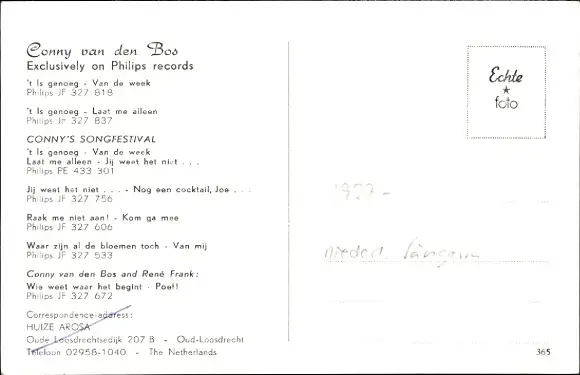 Conny van den Bos
Exclusively on Philips records
't Is genoeg - Van de week
Philips JF 327 818
't Is genoeg - Laat me alleen
Philips JF 327 837
CONNY'S SONGFESTIVAL
't Is genoeg - Van de week
Laat me alleen - Jij weet het niet . . .
Philips PE 433 301
Jij weet het niet . . . - Nog een cocktail, Joe . . .
Philips JF 327 756
Raak me niet aan! - Kom ga mee
Philips JF 327 606
Waar zijn al de bloemen toch - Van mij
Philips JF 327 533
Conny van den Bos and René Frank:
Wie weet waar het begint - Poeh!
Philips JF 327 672
Correspondence-address:
HUIZE AROSA
Oude Loosdrechtsedijk 207 B - Oud-Loosdrecht
Telefoon 02958-1040 - The Netherlands
Echte
★
foto
niederl. Sängerin
365